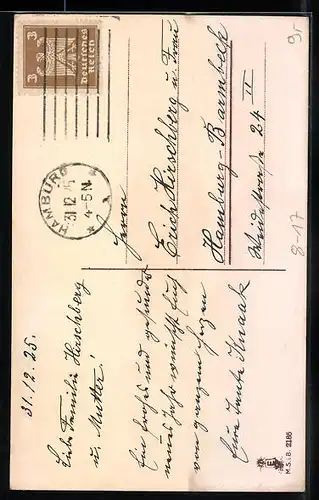 3 3
Deutsches
Reich
HAMBURG
31.12.25
4-5 N.
31.12.25.
Liebe Familie Hirschberg
u. Mutter!
Ein frohes und gesundes
neues Jahr wünscht Euch
von ganzem Herzen
Eure Tante Knaak
Herrn
Erich Hirschberg u. Frau
Hamburg-Barmbeck
24 II
M.S.i.B. 2186
8-17